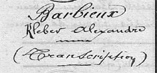 Barbieux
Kléber Alexandre
(Transcription)